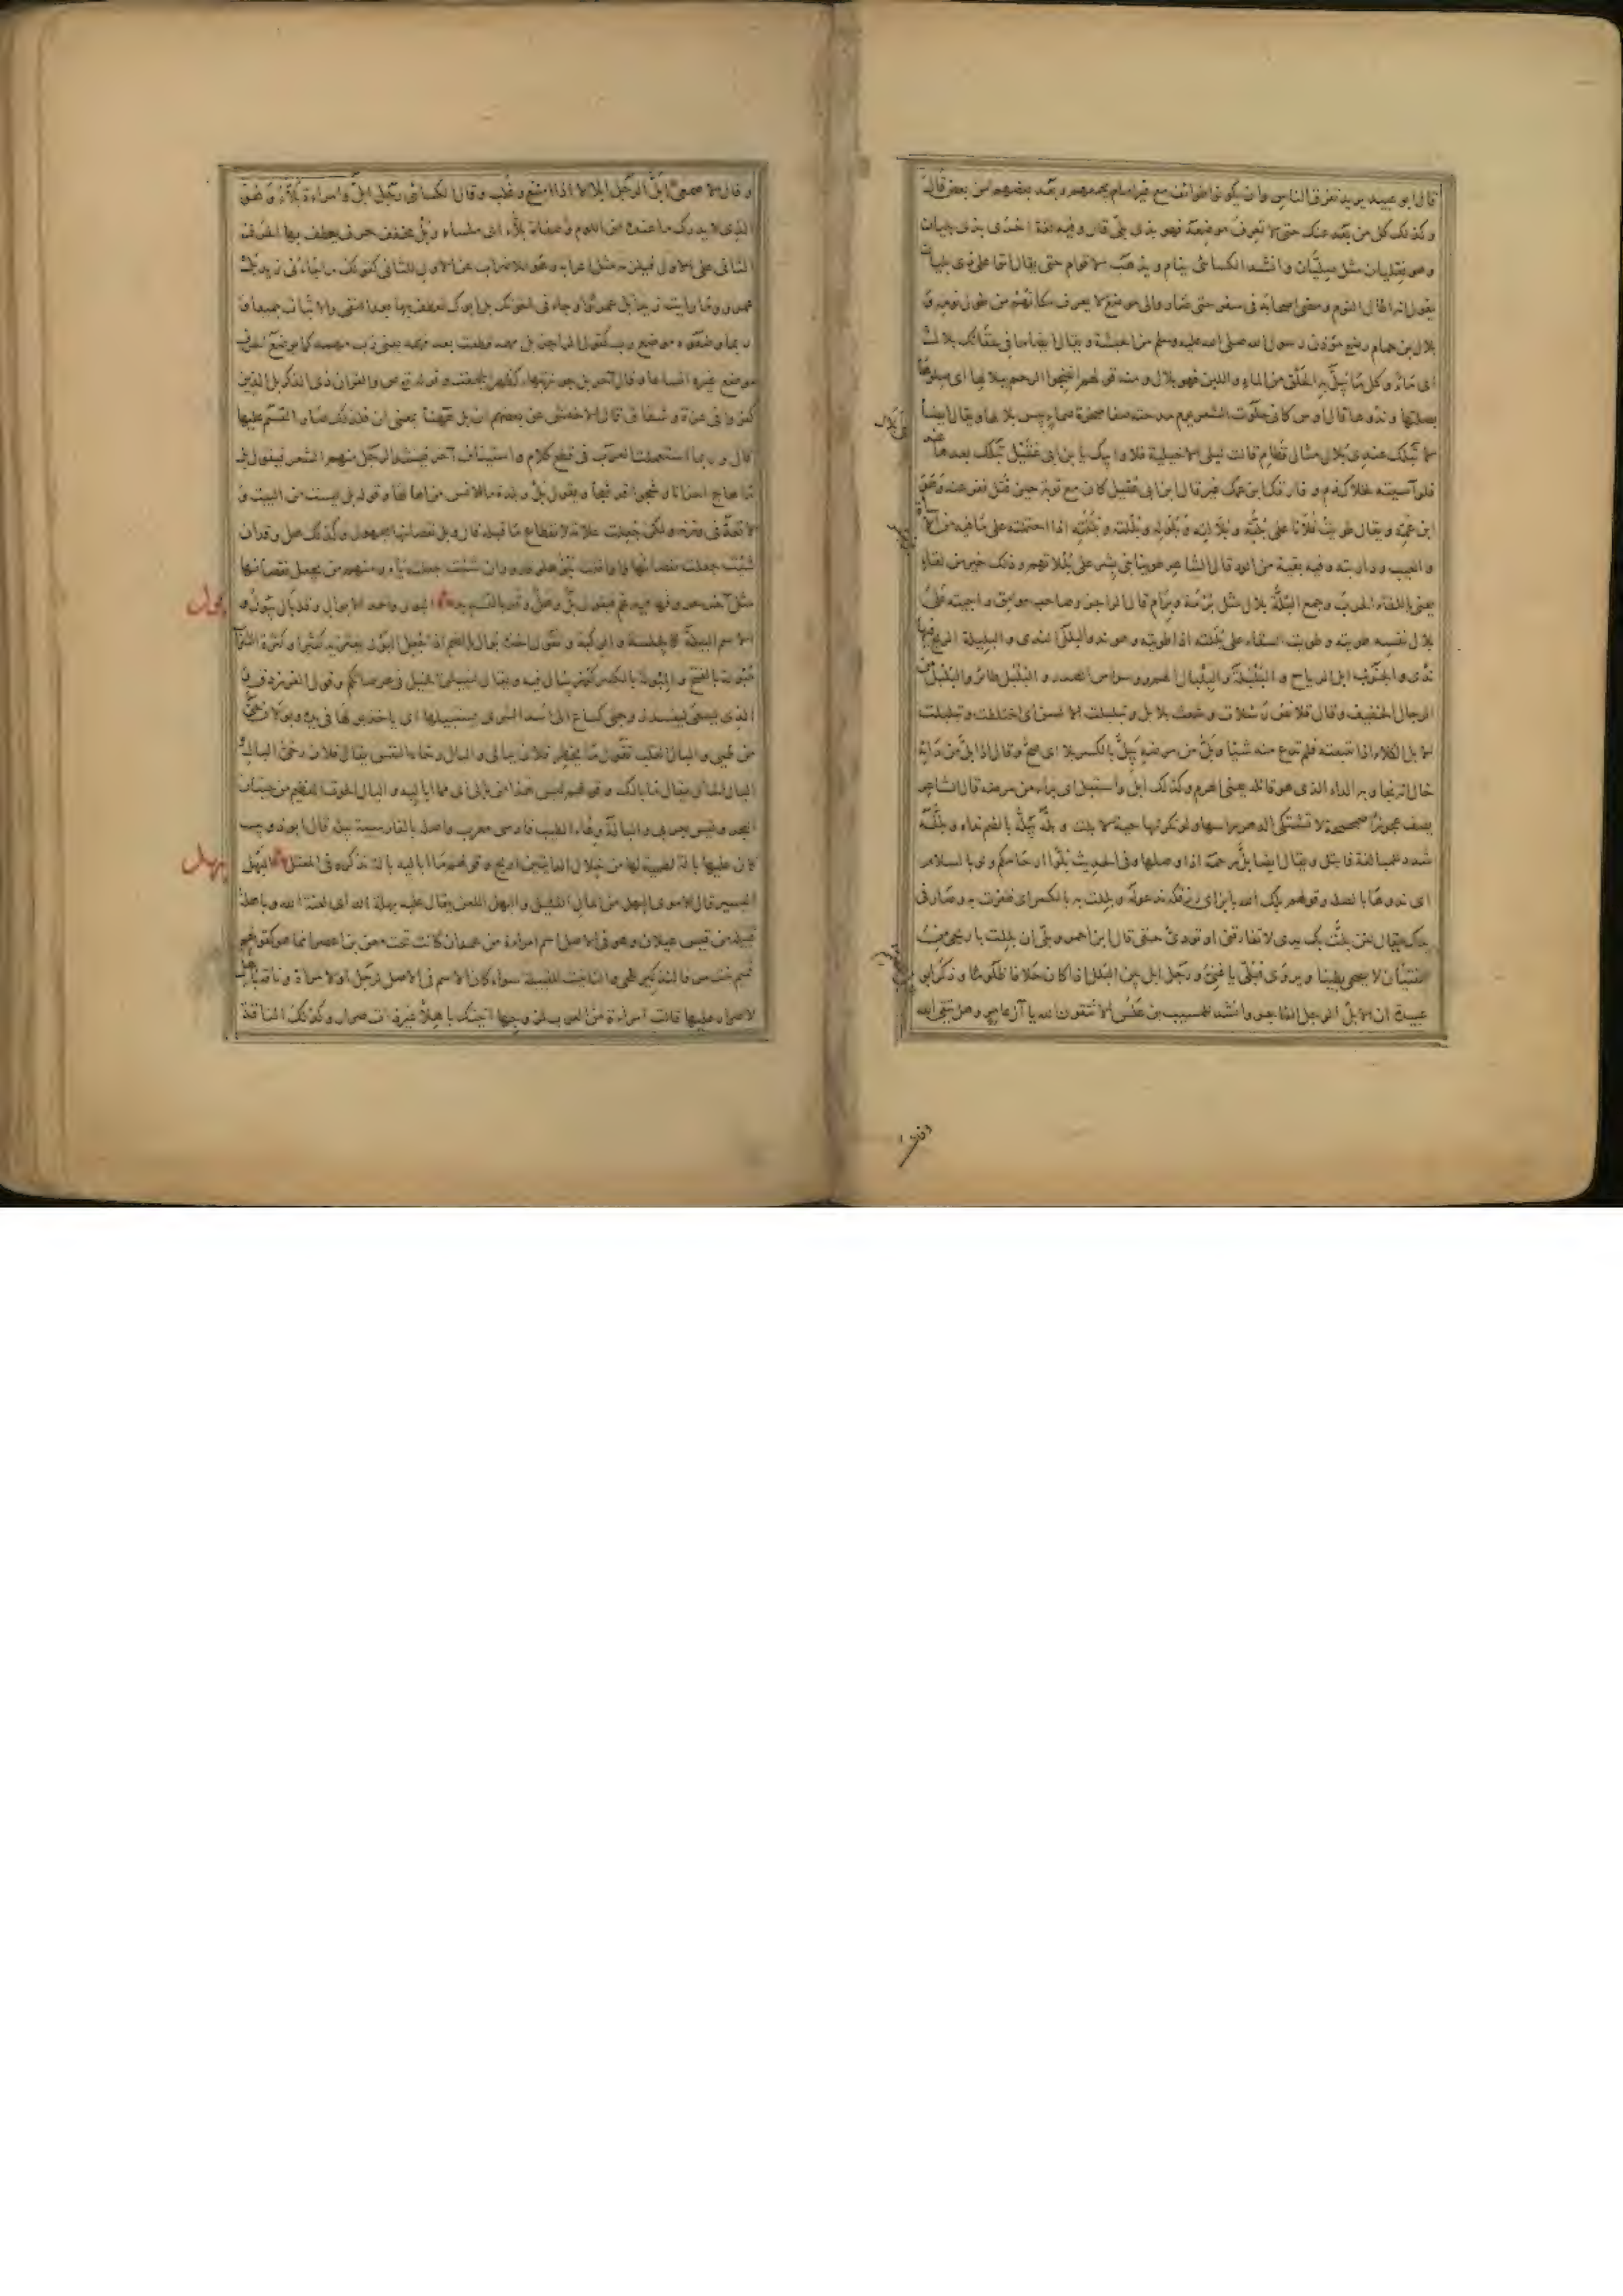 قال ابو عبيد يريد تفرق الناس وان يكونوا طوائف مع غير امام يجمعهم وبعد بعضهم من بعض قال
وكذلك كل من بعد عنك حتى لا تعرف موضعه فهو بذى بلى قال وفيه لغة اخرى بذى بليان
وهو فعليان مثل صليان وانشد الكسائى ينام ويذهب الاقوام حتى يقال اتوا على ذى بليان
يقول انه اطال النوم ومضى اصحابه فى سفر حتى صاروا الى موضع لا يعرف مكانهم من طول نومه و
بلال بن حمام رضى مؤذن رسول الله صلى الله عليه وسلم من الحبشة ويقال ايضا ما فى سقائك بلال
اى ماء وكل ما يبل به الحلق من الماء واللبن فهو بلال ومنه قولهم انضحوا الرحم ببلالها اى صلوها
بصلتها وندوها قال اوس كانى حلوت الشعر يوم مدحته صفا صخرة صماء يبس بلالها ويقال ايضا
لا تبلك عندى بلال مثال قطام قالت ليلى الاخيلية فلا وابيك يا بن ابى عقيل تبلك بعدها
فلو آسيته لخلاك ذم وفارقك ابن عمك غير قال ابن ابى عقيل كان مع توبة حين قتل ففر عنه وهو
ابن عمه ويقال طويت فلانا على بلته وبلالته وبلوله وبللته وبللته اذا احتملته على ما فيه من الاساءة
والعيب وداريته وفيه بقية من الود قال الشاعر طوينا بنى بشر على بللاتهم وذلك خير من لقاء
يعنى باللقاء الحرب وجمع البلة بلال مثل برمة وبرام قال الراجز وصاحب مرامق داجيته على
بلال نفسه طويته وطويت السقاء على بللته اذا طويته وهو ند والبلل الندى والبليلة الريح فيها
ندى والجنوب ابل الرياح والبلبلة والبلبال الهم ووسواس الصدر والبلبل طائر والبلبل من
الرجال الخفيف وقال قلائص رسلات وشعث بلابل وتبلبلت الالسن اى اختلطت وتبلبلت
الابل الكلا اذا تتبعته فلم تدع منه شيئا وبل من مرضه يبل بالكسر بلا اى صح وقال اذا بل من دائه
خال انه نجا وبه الداء الذى هو قاتله يعنى الهرم وكذلك ابل واستبل اى برأ من مرضه قال الشاعر
يصف عجوزا صحيحة لا تشتكى الدهر راسها ولو نكزتها حية لابلت وبله يبله بالضم نداه وبلله
شدد للمبالغة فابتل ويقال ايضا بل رحمه اذا وصلها وفى الحديث بلوا ارحامكم ولو بالسلام
اى ندوها بالصلة وقولهم بلك الله بابن اى رزقكه يدعو له وبللت به بالكسر اى ظفرت به وصار فى
يدك يقال لئن بلت بك يدى لا تفارقنى او تودى حقى قال ابن احمر وبلى ان بللت باريحى من
الفتيان لا يضحى بطينا ويروى فبلى يا غنى ورجل ابل بين البلل اذا كان حلافا ظلوما وذكر ابو
عبيدة ان الابل الرجل الفاجر وانشد للمسيب بن علس الا تتقون الله يا آل عامر وهل يتقى الله
وقال الاصمعى ابل الرجل ابلالا اذا امتنع وغلب وقال الكسائى رجل ابل وامراة بلاء وهو
الذى لا يدرك ما عنده من اللوم وصفاة بلاء اى ملساء وبل مخفف حرف يعطف بها الحرف
الثانى على الاول فيلزمه مثل اعرابه وهو للاضراب عن الاول للثانى كقولك ما جاءنى زيد بل
عمرو وما رايت زيدا بل عمروا وجاءنى اخوك بل ابوك تعطف بها بعد النفى والاثبات جميعا و
ربما وضعوه موضع رب كقول الراجز بل مهمه قطعت بعد مهمه يعنى رب مهمه كما يوضع الحرف
موضع غيره اتساعا وقال آخر بل جوز تيهاء كظهر الحجفت وقوله تع ص والقران ذى الذكر بل الذين
كفروا فى عزة وشقاق قال الاخفش عن بعضهم ان بل ههنا بمعنى ان فلذلك صار القسم عليها
قال وربما استعملت العرب فى قطع كلام واستيناف آخر فينشد الرجل منهم الشعر فيقول بل
ما هاج احزانا وشجوا قد شجا ويقول بل وبلدة ما الانس من اهالها وقوله بل ليست من البيت و
لا تعد فى وزنه ولكن جعلت علامة لانقطاع ما قبله قال وبل نقصانها مجهول وكذلك هل وقد ان
شئت جعلت نقصانها واوا قلت بلو هلو قدو وان شئت جعلته ياء ومنهم من يجعل نقصانها
مثل آخر حروفها فيدغم فيقول بل وهل وقد بالتشديد البول واحد الابوال وقد بال يبول و
بول
الاسم البيلة كالجلسة والركبة ويقول اخذه بوال بالضم اذا جعل البول يعتريه كثيرا وكثرة الشراب
مبولة بالفتح والمبولة بالكسر كوز يبال فيه ويقال لنبيلن الخيل فى عرصاتكم وقول الفرزدق وان
الذى يسعى ليفسد زوجتى كساع الى اسد الشرى يستبيلها اى ياخذ بولها فى يده
البال القلب تقول ما يخطر فلان ببالى والبال رخاء النفس يقال فلان رخى البال و
البال الحال يقال ما بالك وقولهم ليس هذا من بالى اى مما اباليه والبال الحوت العظيم من حيتان
البحر وليس بعربى والبالة وعاء الطيب فارسى معرب واصله بالفارسية بيله قال ابو ذويب
كان عليها بالة لطمية لها من خلال الدايتين اريج وقولهم ما اباليه بالة نذكره فى المعتل البهل
بهل
اليسير قال الاموى البهل من المال القليل والبهل اللعن يقال عليه بهلة الله اى لعنة الله وباهلة
قبيلة من قيس عيلان وهو فى الاصل اسم امراة من همدان كانت تحت معن بن اعصر انما هو كقولهم
تميم بنت مر فالتذكير للحى والتانيث للقبيلة سواء كان الاسم فى الاصل لرجل او لامراة وناقة باهل
لا صرار عليها قالت امراة من العرب لزوجها اتيتك باهلا غير ذات صرار وكذلك الناقة